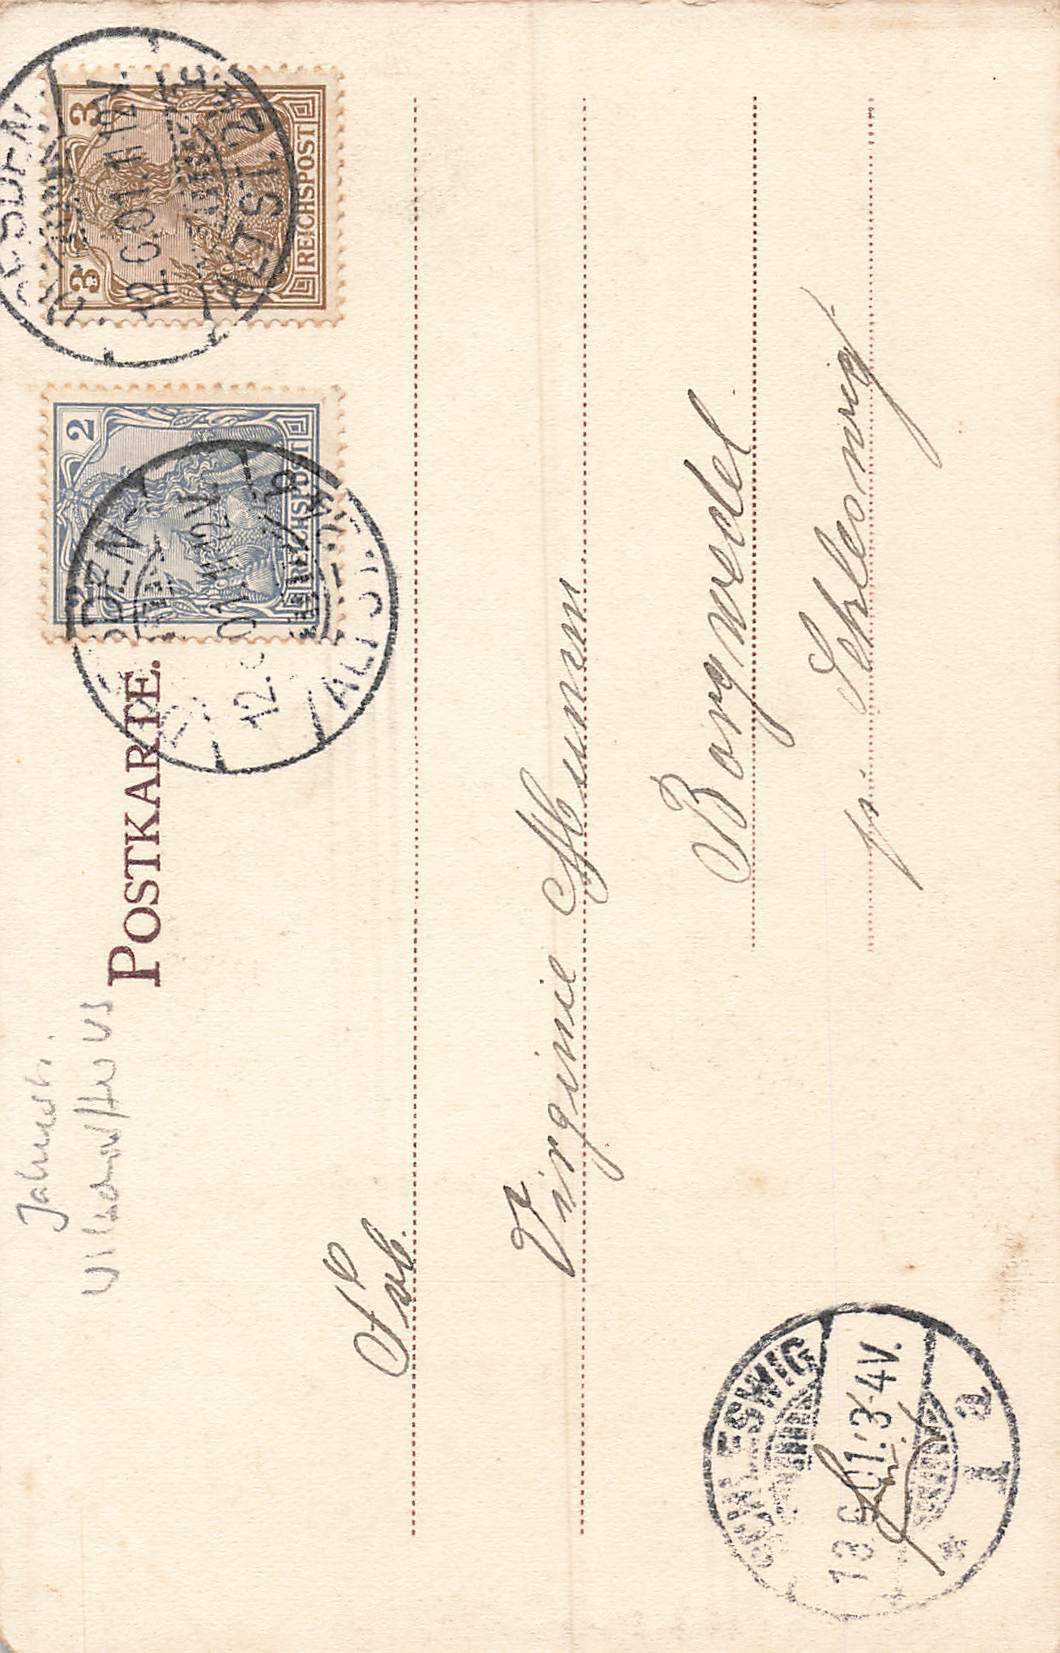 3 3
REICHSPOST
DRESDEN-
ALTST. 24
12.6.01.11-12V.
2
REICHSPOST
12. 01. 11-12V.
ALTST.
POSTKARTE.
Frl.
Virginie
Borgwedel
p. Schleswig
SCHLESWIG
13.6.01. 3-4V.
1a